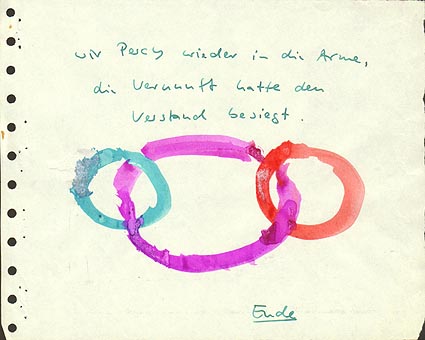 wir Percy wieder in die Arme,
die Vernunft hatte den
Verstand besiegt.
Ende